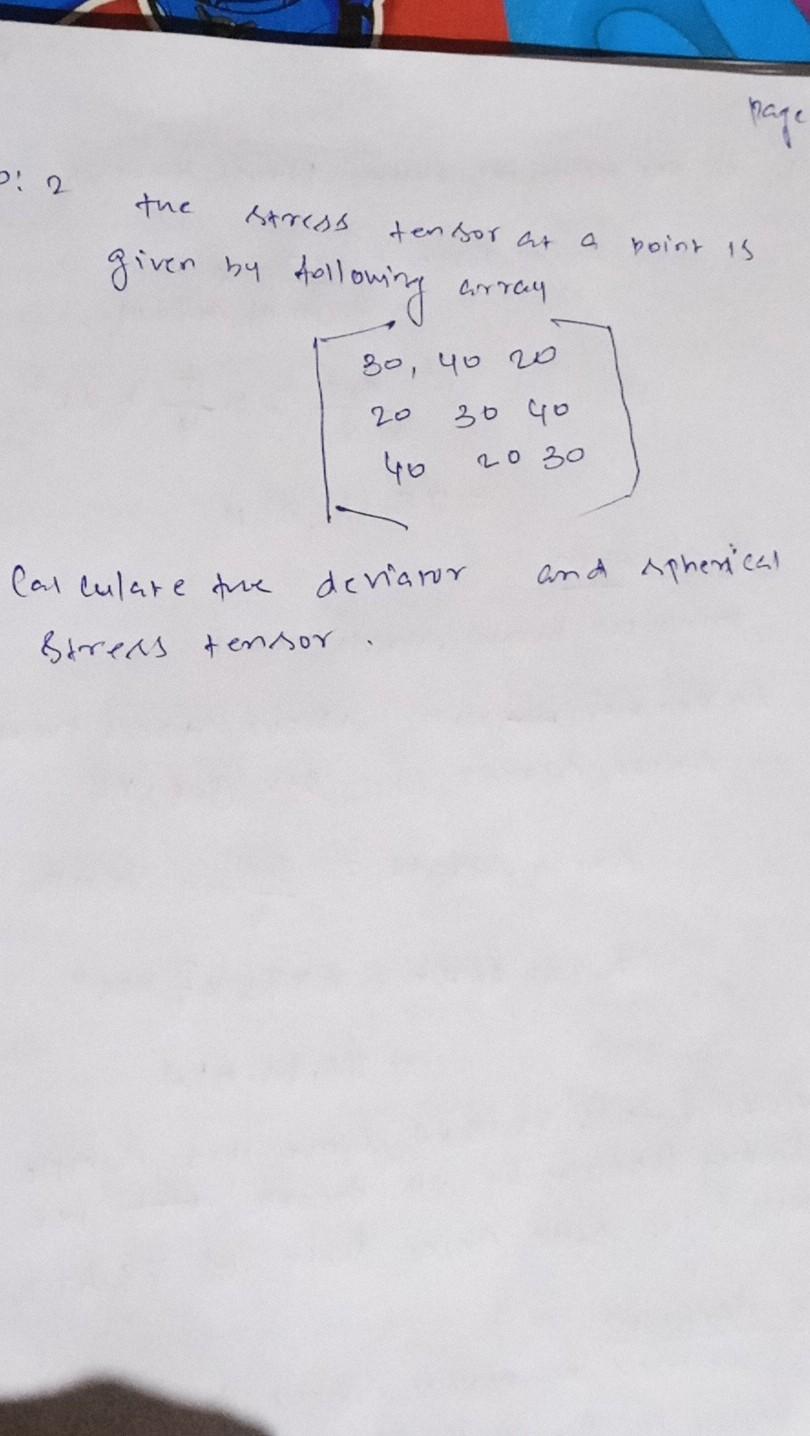 page
: 2 the stress tensor at a point is
given by following array
30, 40 20
20 30 40
40 20 30
Calculate the deviator and spherical
stress tensor .